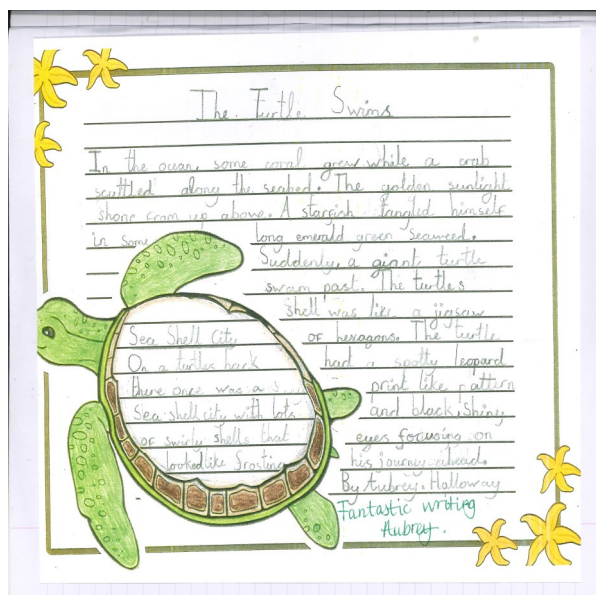 The Turtle Swims
In the ocean, some coral grew while a crab
scuttled along the seabed. The golden sunlight
shone from up above. A starfish tangled himself
in some long emerald green seaweed.
Suddenly, a giant turtle
swam past. The turtles
shell was like a jigsaw
of hexagons. The turtle
had a spotty leopard
print like pattern
and black, shiny
eyes focusing on
his journey ahead.
By Aubrey. Halloway
Fantastic writing
Aubrey.
Sea Shell City
On a turtles back
there once was a
Sea shell city with lots
of swirly shells that
looked like frosting